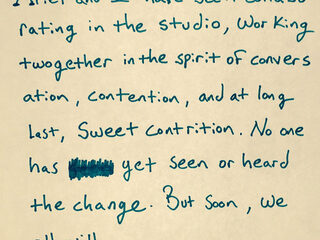 rating in the studio, Wor King
twogether in the spirit of convers
ation, contention, and at long
last, Sweet contrition. No one
has yet seen or heard
the change. But Soon, we